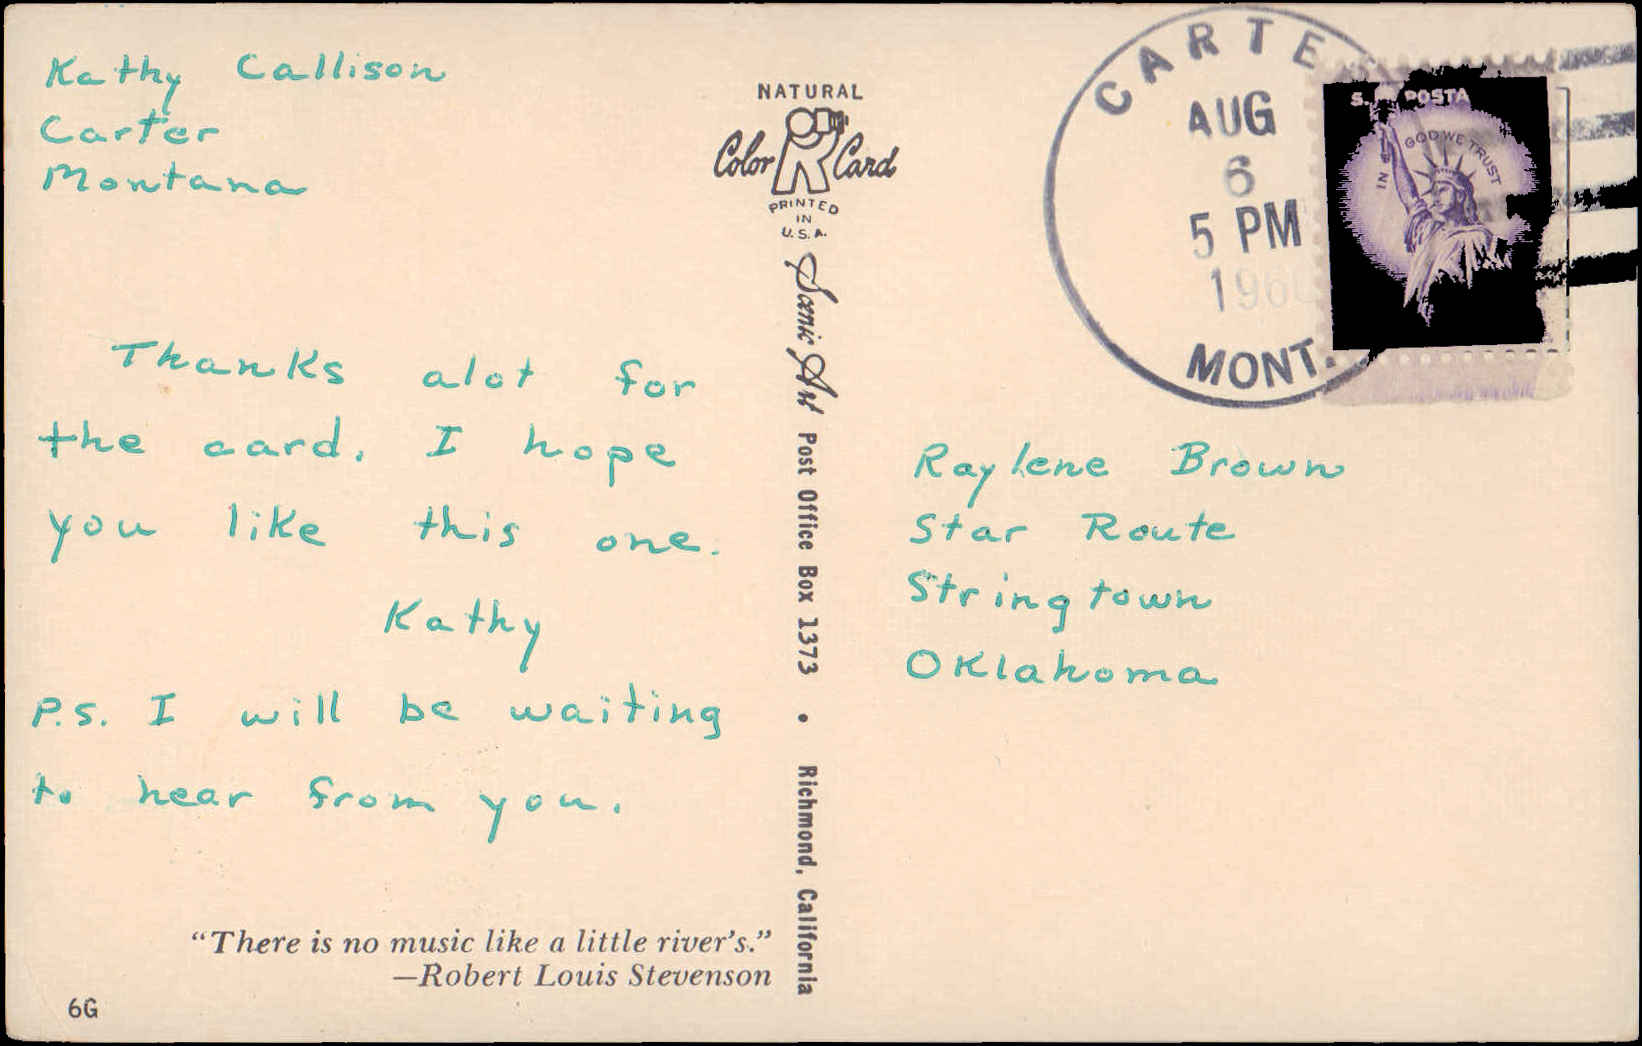 Kathy Callison
Carter
Montana
Thanks alot for
the card. I hope
you like this one.
Kathy
P.S. I will be waiting
to hear from you.
"There is no music like a little river's."
—Robert Louis Stevenson
6G
NATURAL
Color Card
PRINTED
IN
U.S.A.
Scenic Art Post Office Box 1373 • Richmond, California
CARTE
AUG
6
5 PM
MONT.
S. POSTA
IN GOD WE TRUST
Raylene Brown
Star Route
Stringtown
Oklahoma